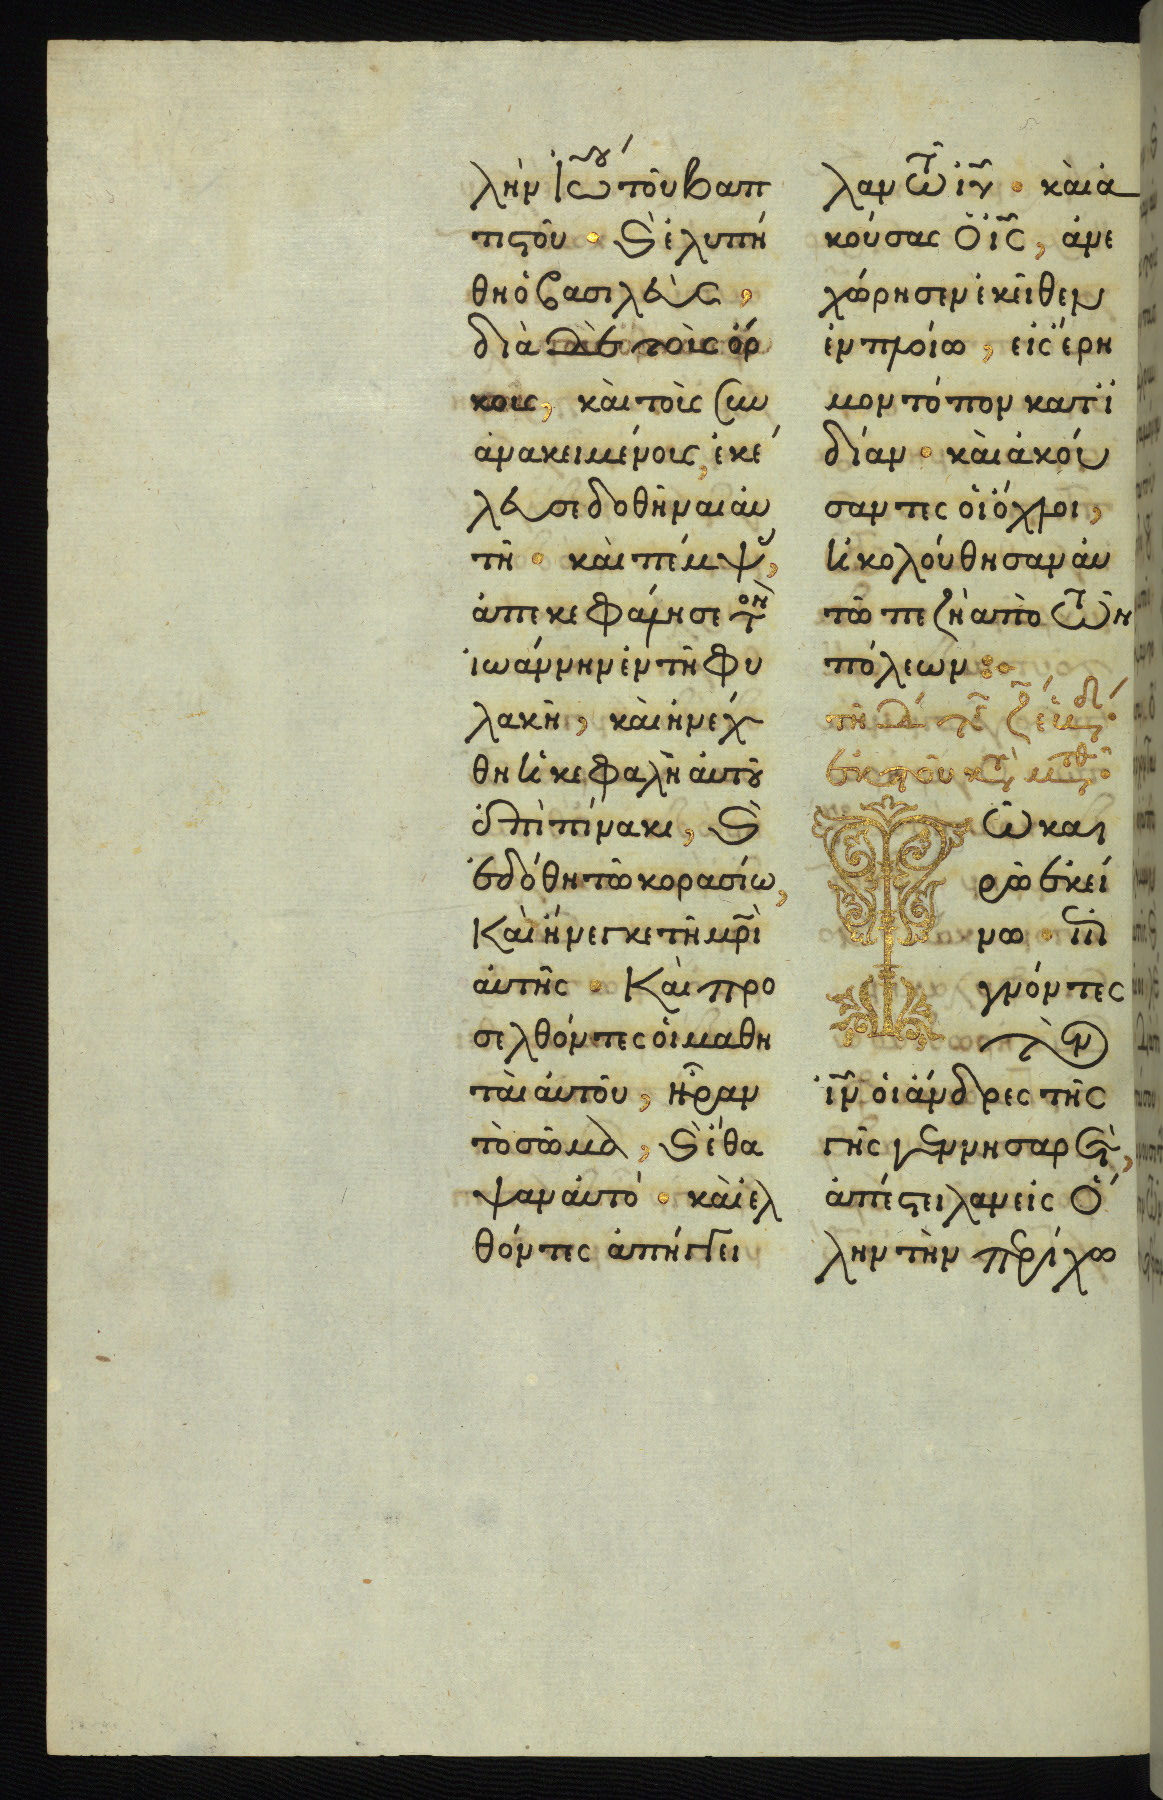 λὴν Ἰω̅ου τοῦ βαπ
τιςοῦ · Ϗ ἐλυπή
θη ὁ βασιλεὺς,
διὰ δὲ τοὶς ὅρ
κοις, καὶ τοὶς συν
ἀνακειμένοις, ἐκέ
λευσε δοθῆναι αὐ
τῆ · καὶ πέμψ,
ἀπεκεφάλησε τὸν
ἰωάννην ἐν τῆ φυ
λακῆ, καὶ ἠνέχ
θη ἡ κεφαλὴ αὐτοῦ
ἐπὶ πίνακι, Ϗ
ἐδόθη τῶ κορασίω,
Καὶ ἤνεγκε τῆ μρ̅ὶ
αὐτῆς · Καὶ προ
σελθόντες οἱ μαθη
ταὶ αὐτοῦ, ἦραν
τὸ σῶμα, Ϗ ἔθα
ψαν αὐτό · καὶ ἐλ
θόντες ἀπήγγει
λαν τῶ ιυ̅ · καὶ ἀ
κούσας ὁ ις̅, ἀνε
χώρησεν ἐκεῖθεν
ἐν πλοίω, εἰς ἔρη
μον τόπον κατ' ἰ
δίαν · καὶ ἀκού
σαντες οἱ ὄχλοι,
ἠκολούθησαν αὐ
τῶ πεζῆ ἀπὸ τῶν
πόλεων :
ἐκ τοῦ κτ̀ μτθ
Τῶ και
ρῶ ἐκεί
νω · ἐπι
γνόντες
τὸν
ιν̅ οἱ ἄνδρες τῆς
γῆς γεννησαρὲτ,
ἀπέςειλαν εἰς ὅ
λην τὴν περίχω